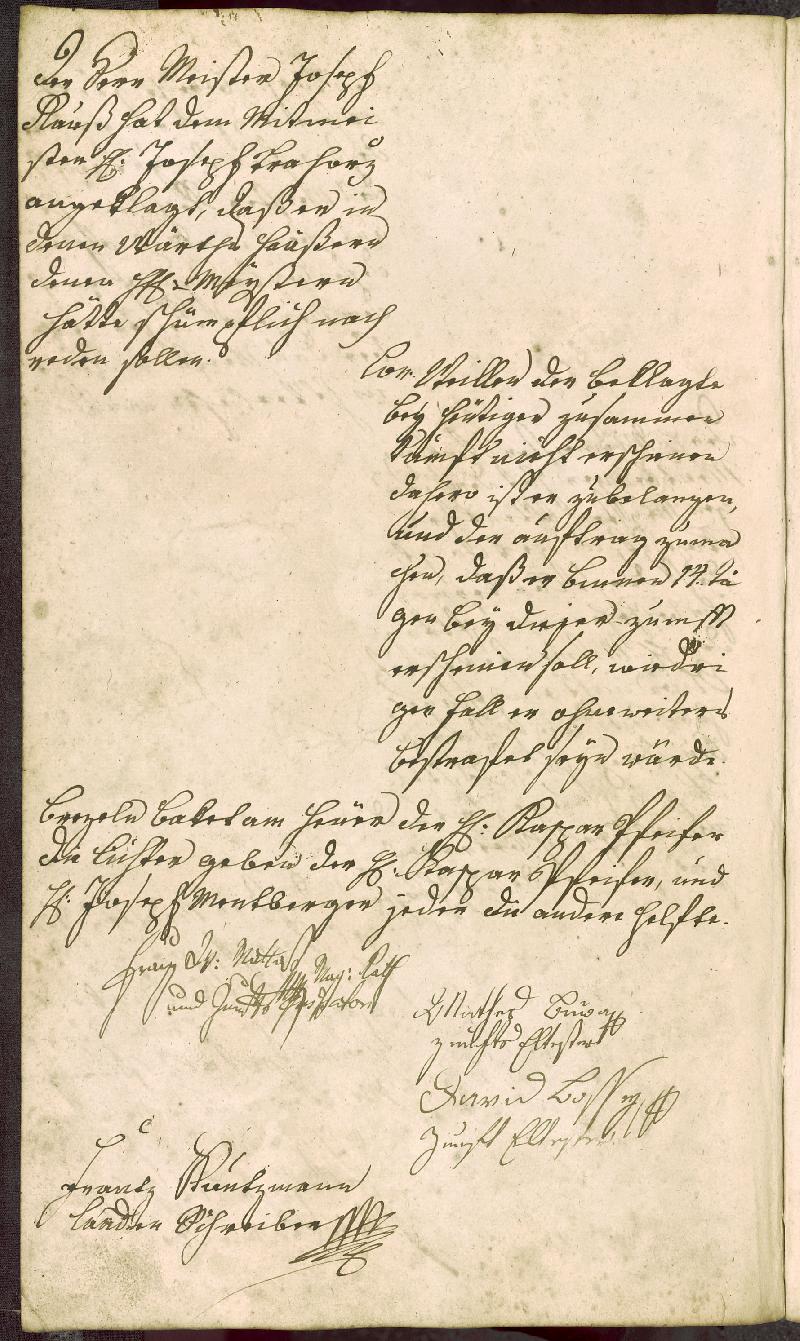 Der Herr Meister Joseph
Klauß hat dem Mitmei
ster H: Joseph
angeklagt, daß er in
denen Würths häußern
denen HH: Meystern
hätte schümpflich nach
reden sollen.
Con: Weillen der beklagte
bey heütiger zusammen
kunft nicht erschinen
dahero ist er zubelangen,
und der auftrag zuma
chen, daß er binnen 14 tä
gen bey dieser zunfft
erscheinen soll, wiedri
gen fall er ohne weiters
bestrafet seyn würde.
Brezeln baket am heüer der H: Kaspar Pfeifer
die lichter geben der H: Kaspar Pfeifer, und
H: Joseph Wentberger jeder die andere helfte.
Frantz Mag: Rath
und
Mathes
zunfts Eltester
David
Zunft Eltester
Frantz
Schreiber